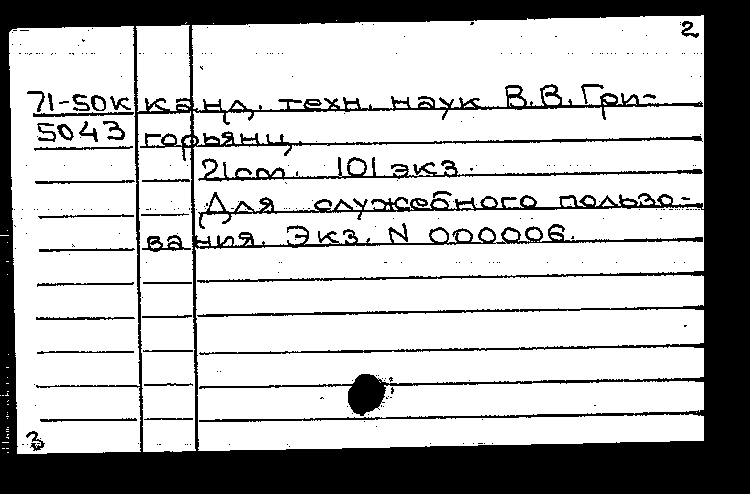 2
71-50к канд. техн. наук В.В. Гри-
5043 горьянц.
21 cm. 101 экз.
Для служебного пользо-
вания. Экз. N 000006.
3